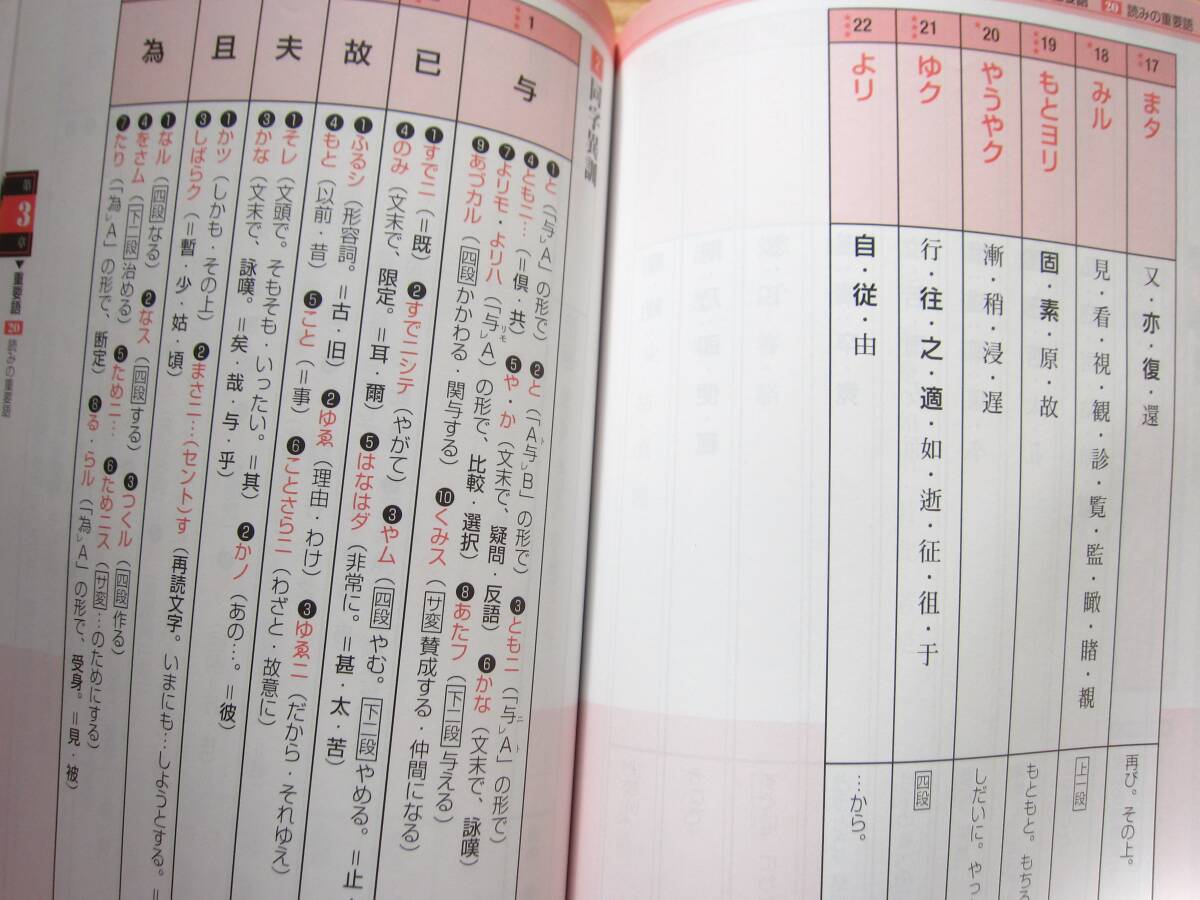 20 読みの重要語
17 まタ 又・亦・復・還 再び。その上。
18 みル 見・看・視・観・診・覧・監・瞰・睹・覩 上一段
19 もとヨリ 固・素・原・故 もともと。もちろ
20 やうやク 漸・稍・浸・遅 しだいに。やっ
21 ゆク 行・往・之・適・如・逝・征・徂・于 四段
22 よリ 自・従・由 …から。
2 同字異訓
1 与
❶と(「与レA」の形で) ❷と(「A与レB」の形で) ❸ともニ(「与レA」の形で)
❹ともニ…(=倶・共) ❺や・か(文末で、疑問・反語) ❻かな(文末で、詠嘆)
❼よリモ・よリハ(「与レA」の形で、比較・選択) ❽あたフ(下二段 与える)
❾あづカル(四段 かかわる・関与する) ❿くみス(サ変 賛成する・仲間になる)
已
❶すでニ(=既) ❷すでニシテ(やがて) ❸やム(四段 やむ。下二段 やめる。=止
❹のみ(文末で、限定。=耳・爾) ❺はなはダ(非常に。=甚・太・苦)
故
❶ふるシ(形容詞。=古・旧) ❷ゆゑ(理由・わけ) ❸ゆゑニ(だから・それゆえ)
❹もと(以前・昔) ❺こと(=事) ❻ことさらニ(わざと・故意に)
夫
❶そレ(文頭で。そもそも・いったい。=其) ❷かノ(あの…。=彼)
❸かな(文末で、詠嘆。=矣・哉・与・乎)
且
❶かツ(しかも・その上) ❷まさニ…(セント)す(再読文字。いまにも…しようとする。=
❸しばらク(=暫・少・姑・頃)
為
❶なル(四段 なる) ❷なス(四段 する) ❸つくル(四段 作る)
❹をさム(下二段 治める) ❺ためニ… ❻ためニス(サ変 …のためにする)
❼たり(「為レA」の形で、断定) ❽る・らル(「為レA」の形で、受身。=見・被)
第3章 ▼重要語 20 読みの重要語